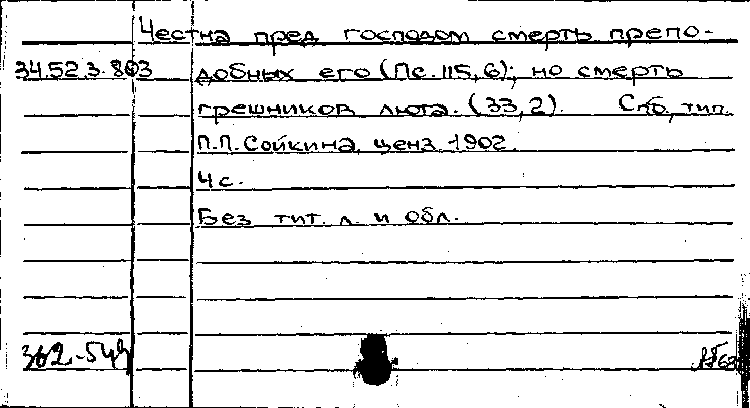 Честна пред господом смерть препо-
34.52.3.803 добных его (Пс. 115, 6); но смерть
грешников люта. (33, 2). Спб, тип.
П.П. Сойкина, ценз. 1902.
4 с.
Без тит. л. и обл.